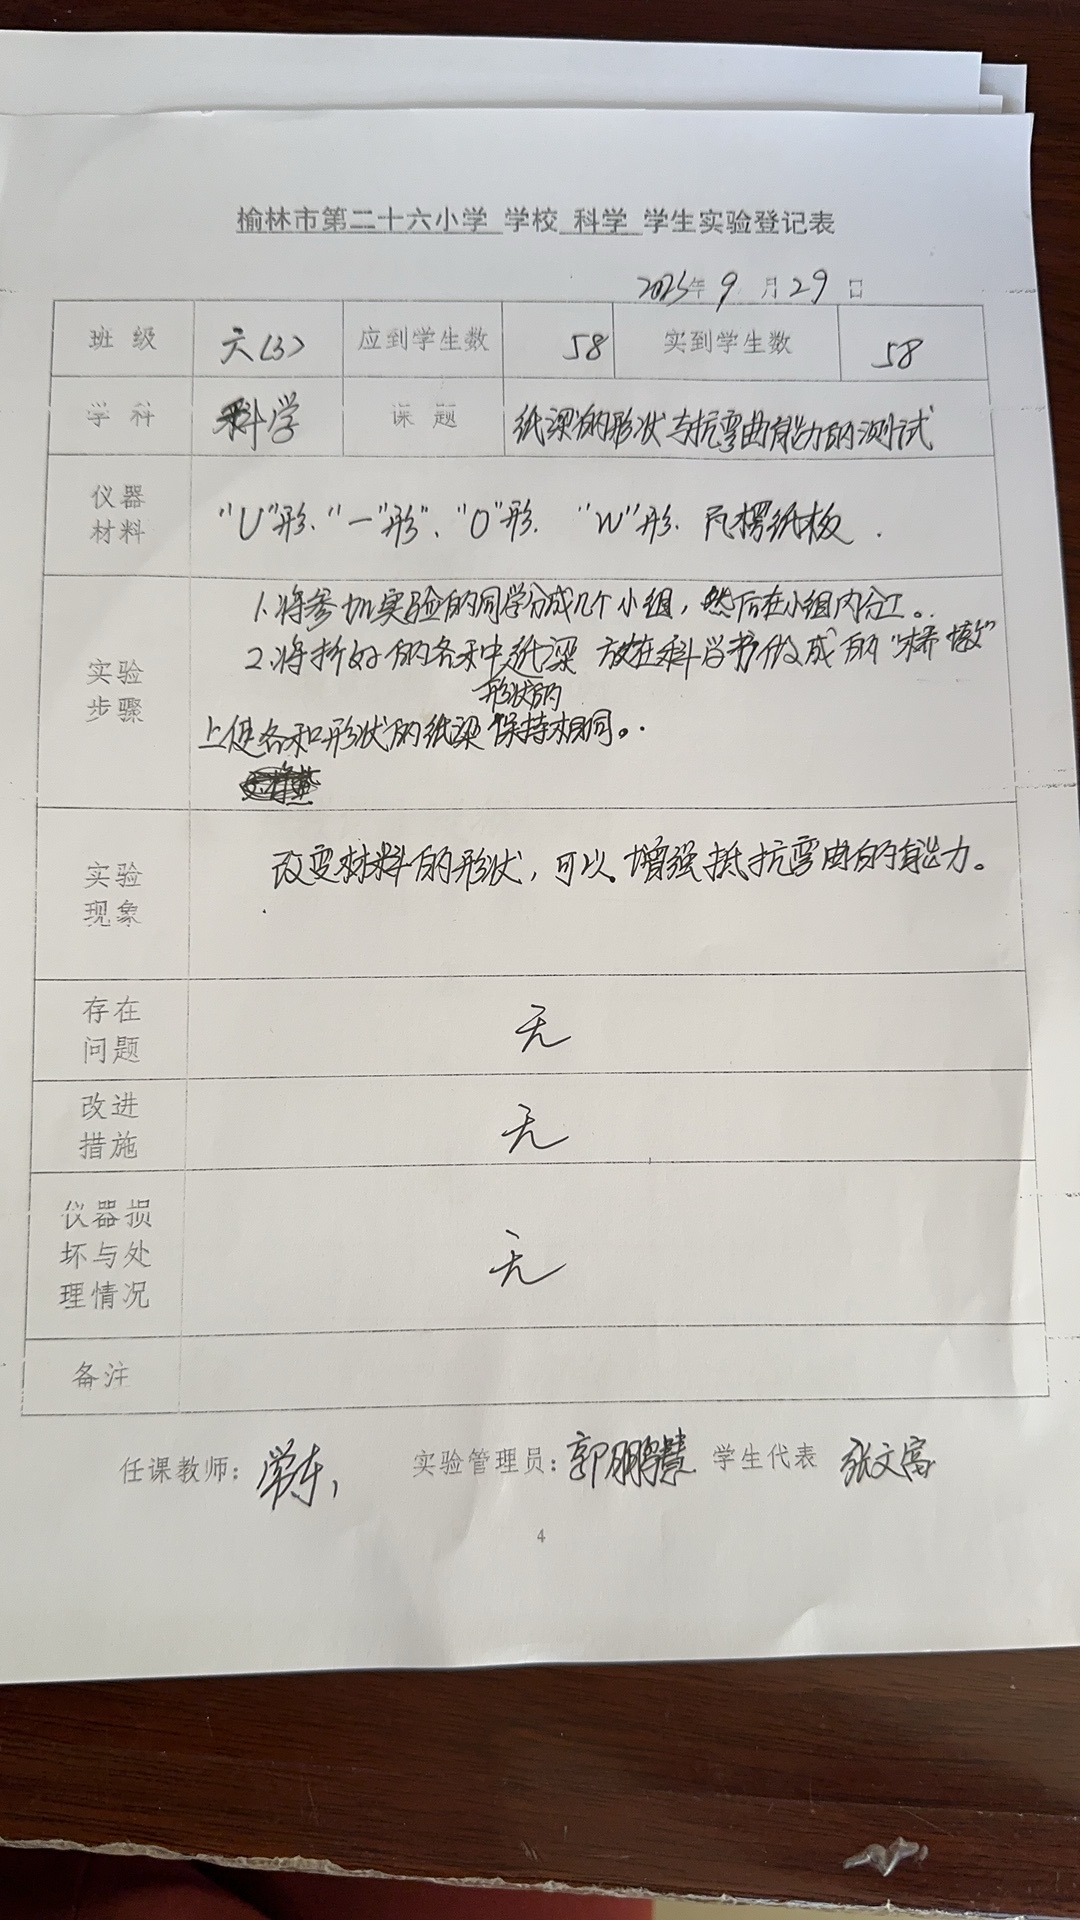 榆林市第二十六小学 学校 科学 学生实验登记表
2023年 9 月 29 日
班 级 六(3) 应到学生数 58 实到学生数 58
学 科 科学 课 题 纸梁的形状与抗弯曲能力的测试
仪器
材料
"U"形、"一"形"、"O"形、"W"形、瓦楞纸板.
实验
步骤
1.将参加实验的同学分成几个小组,然后在小组内分工。
2.将折好的各种纸梁放在科学书做成的"桥墩"
形状的
上使各种形状的纸梁保持相同。
实验
现象
改变材料的形状,可以增强抵抗弯曲的能力。
存在
问题
无
改进
措施
无
仪器损
坏与处
理情况
无
备注
任课教师: 实验管理员:郭鹏慧 学生代表 张文富
4